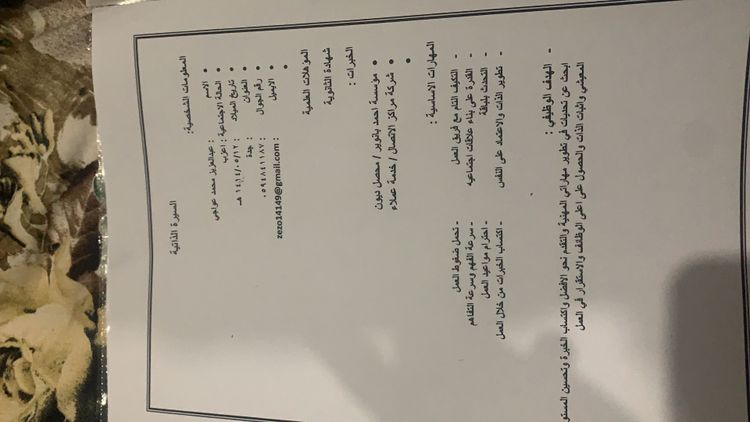 السيرة الذاتية
المعلومات الشخصية:
الاسم : عبدالعزيز محمد عواجي
الحالة الاجتماعية : اعزب
تاريخ الميلاد : ١٤١٤/٠٥/١٢ هـ
العنوان : جدة
رقم الجوال : ٠٥٩٤٨٤١١٨٧
الايميل : zezo14149@gmail.com
المؤهلات العلمية
شهادة الثانوية
الخبرات :
مؤسسة احمد بانوير / محصل ديون
شركة مراكز الاتصال / خدمة عملاء
المهارات الاساسية :
- التكيف التام مع فريق العمل - تحمل ضغوط العمل
- القدرة على بناء علاقات اجتماعيه - سرعة الفهم وسرعة التفاهم
- التحدث بلباقة - احترام مواعيد العمل
- تطوير الذات والاعتماد على النفس - اكتساب الخبرات من خلال العمل
- الهدف الوظيفي :
ابحث عن تحديات في تطوير مهاراتي المهنية والتقدم نحو الافضل واكتساب الخبرة وتحسين
المعيشي واثبات الذات والحصول على اعلى الوظائف والاستقرار في العمل